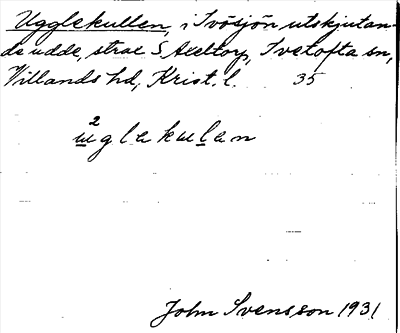 Ugglekullen, i Ivösjön utskjutan-
de udde, strax S Axeltorp, Ivetofta sn,
Villands hd, Krist. l. 35
2
uglakulan
John Svensson 1931